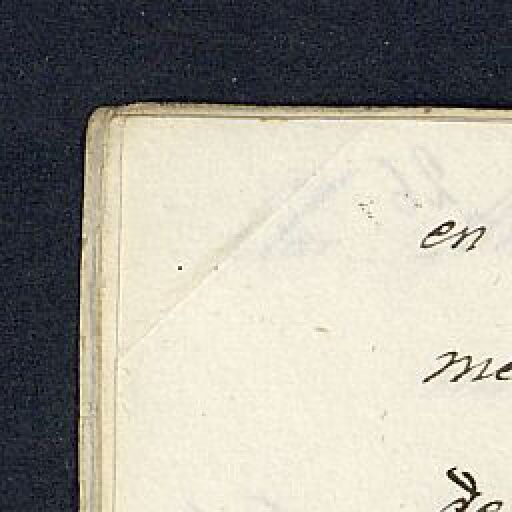 en
me
de